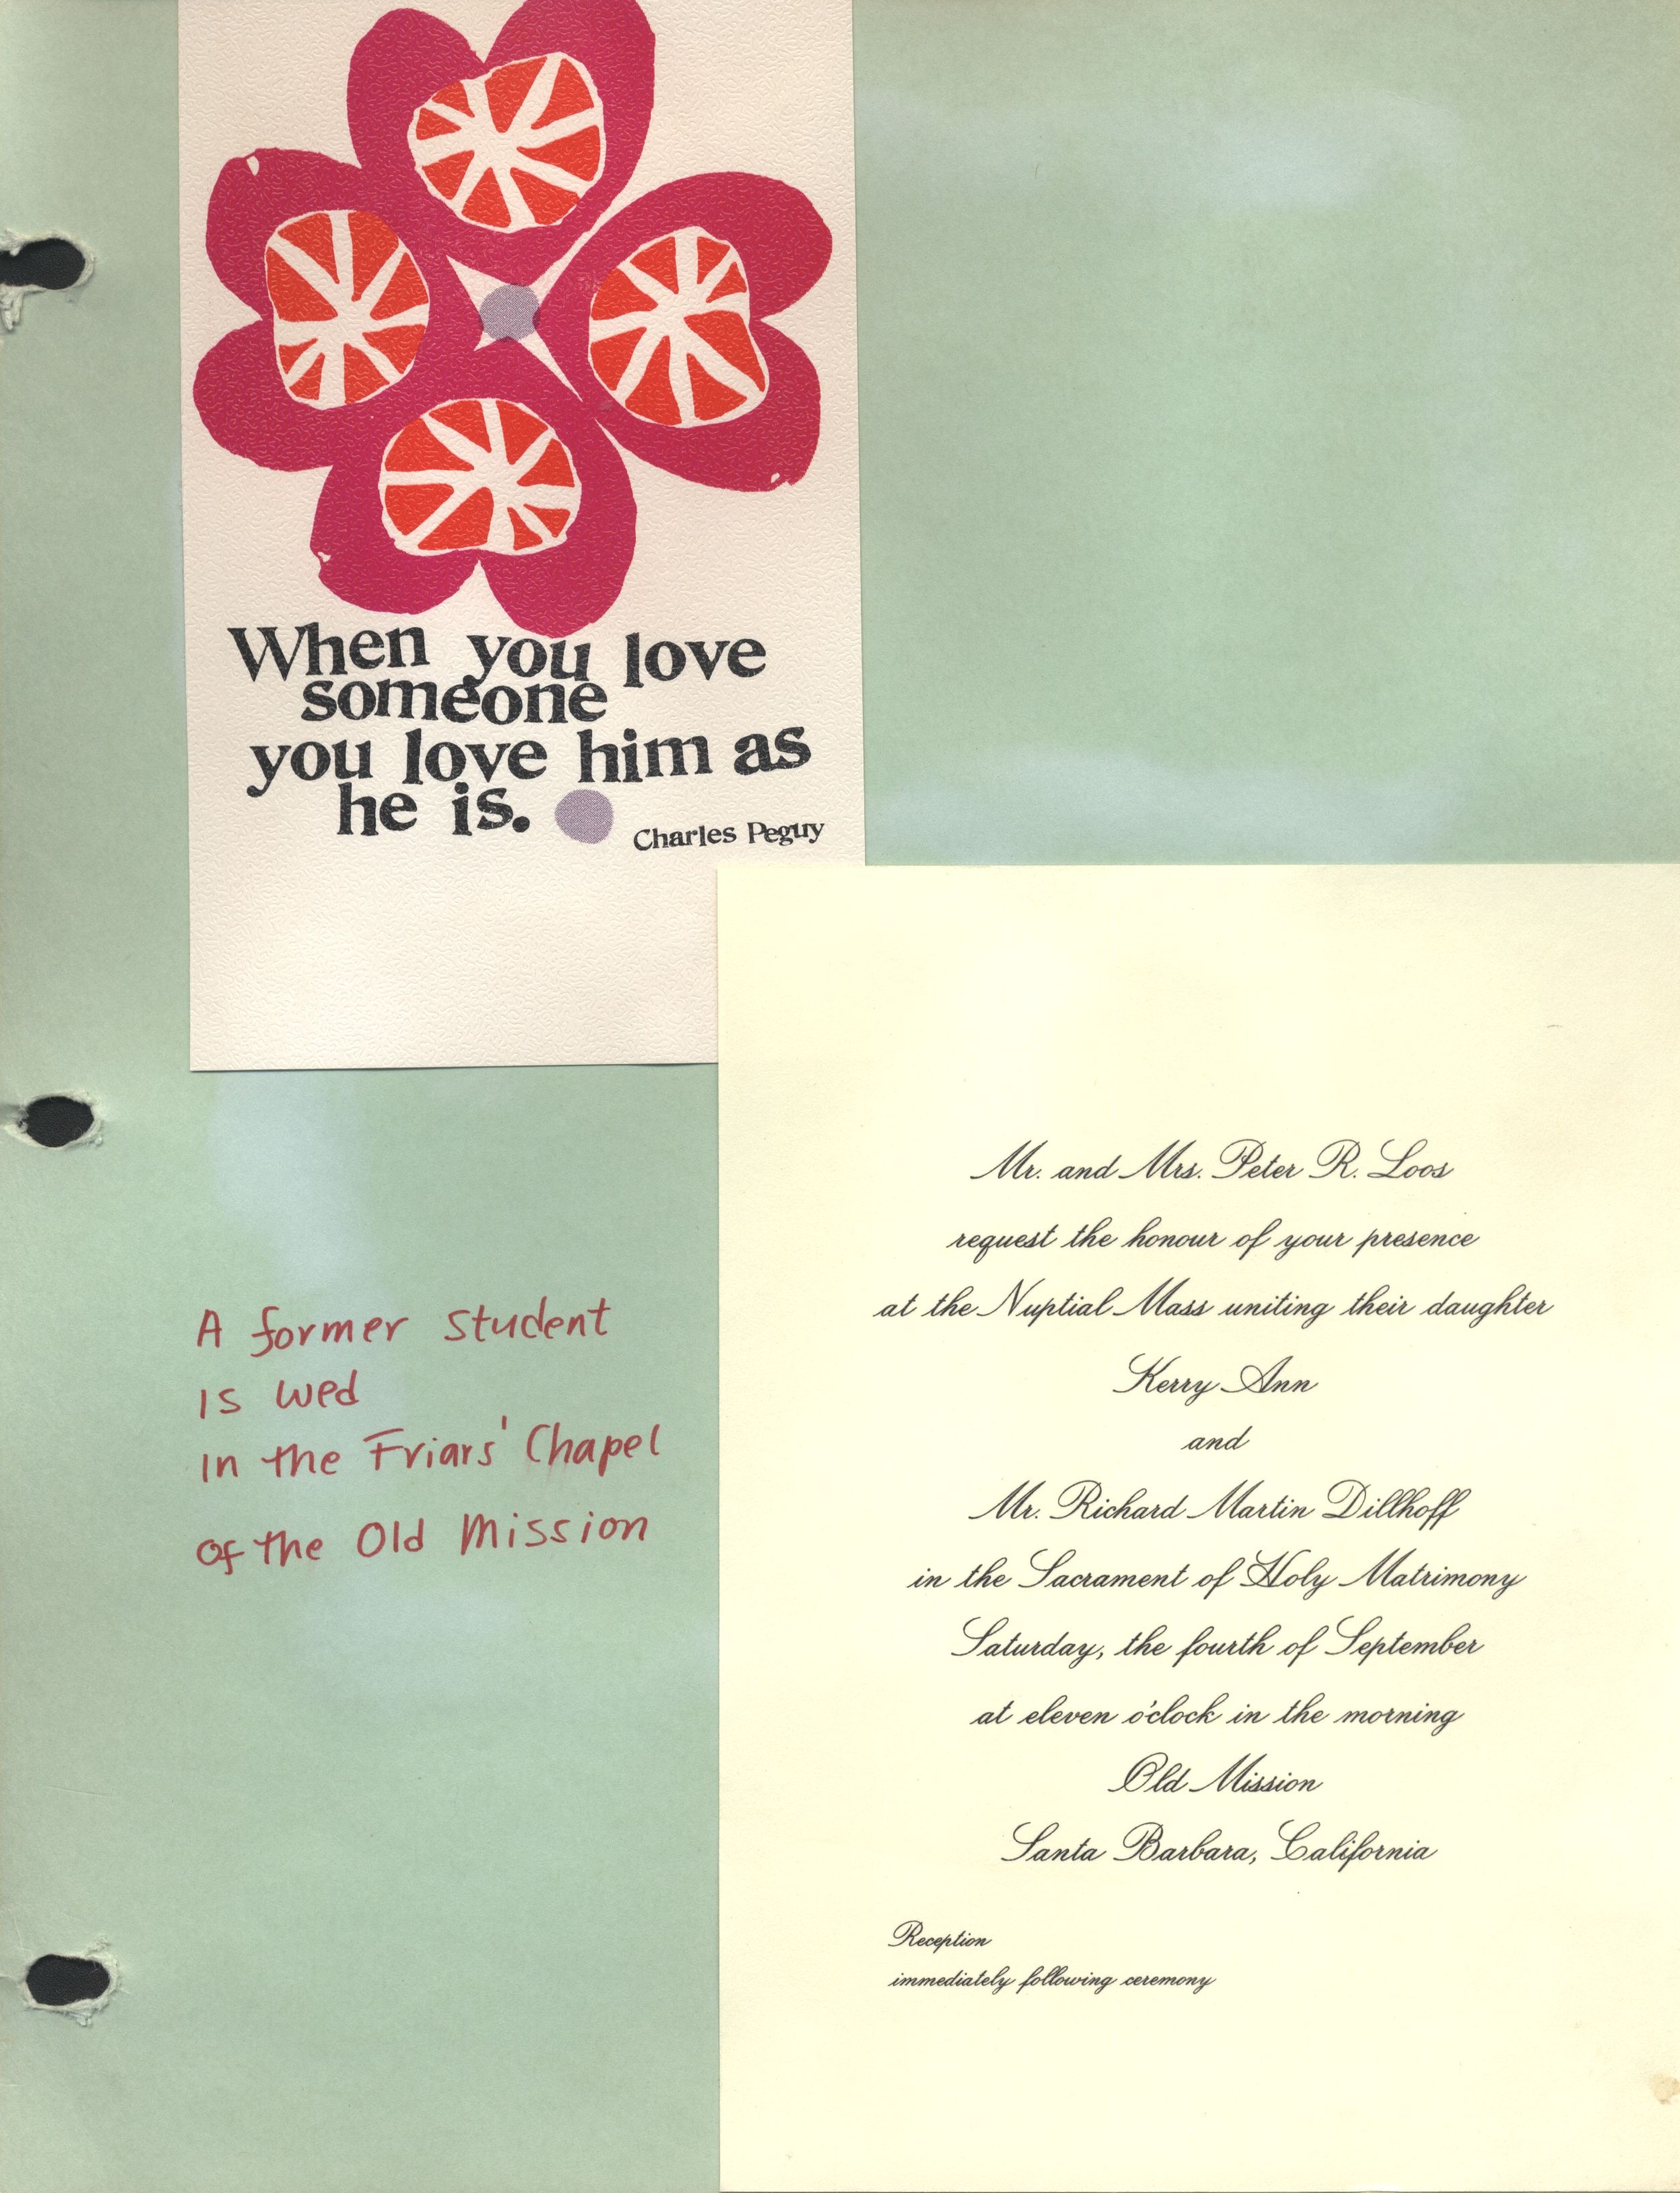 When you love
someone
you love him as
he is.
Charles Peguy
Mr. and Mrs. Peter R. Loos
request the honour of your presence
at the Nuptial Mass uniting their daughter
Kerry Ann
and
Mr. Richard Martin Dillhoff
in the Sacrament of Holy Matrimony
Saturday, the fourth of September
at eleven o'clock in the morning
Old Mission
Santa Barbara, California
Reception
immediately following ceremony
A former student
is wed
in the Friars' Chapel
of the Old Mission